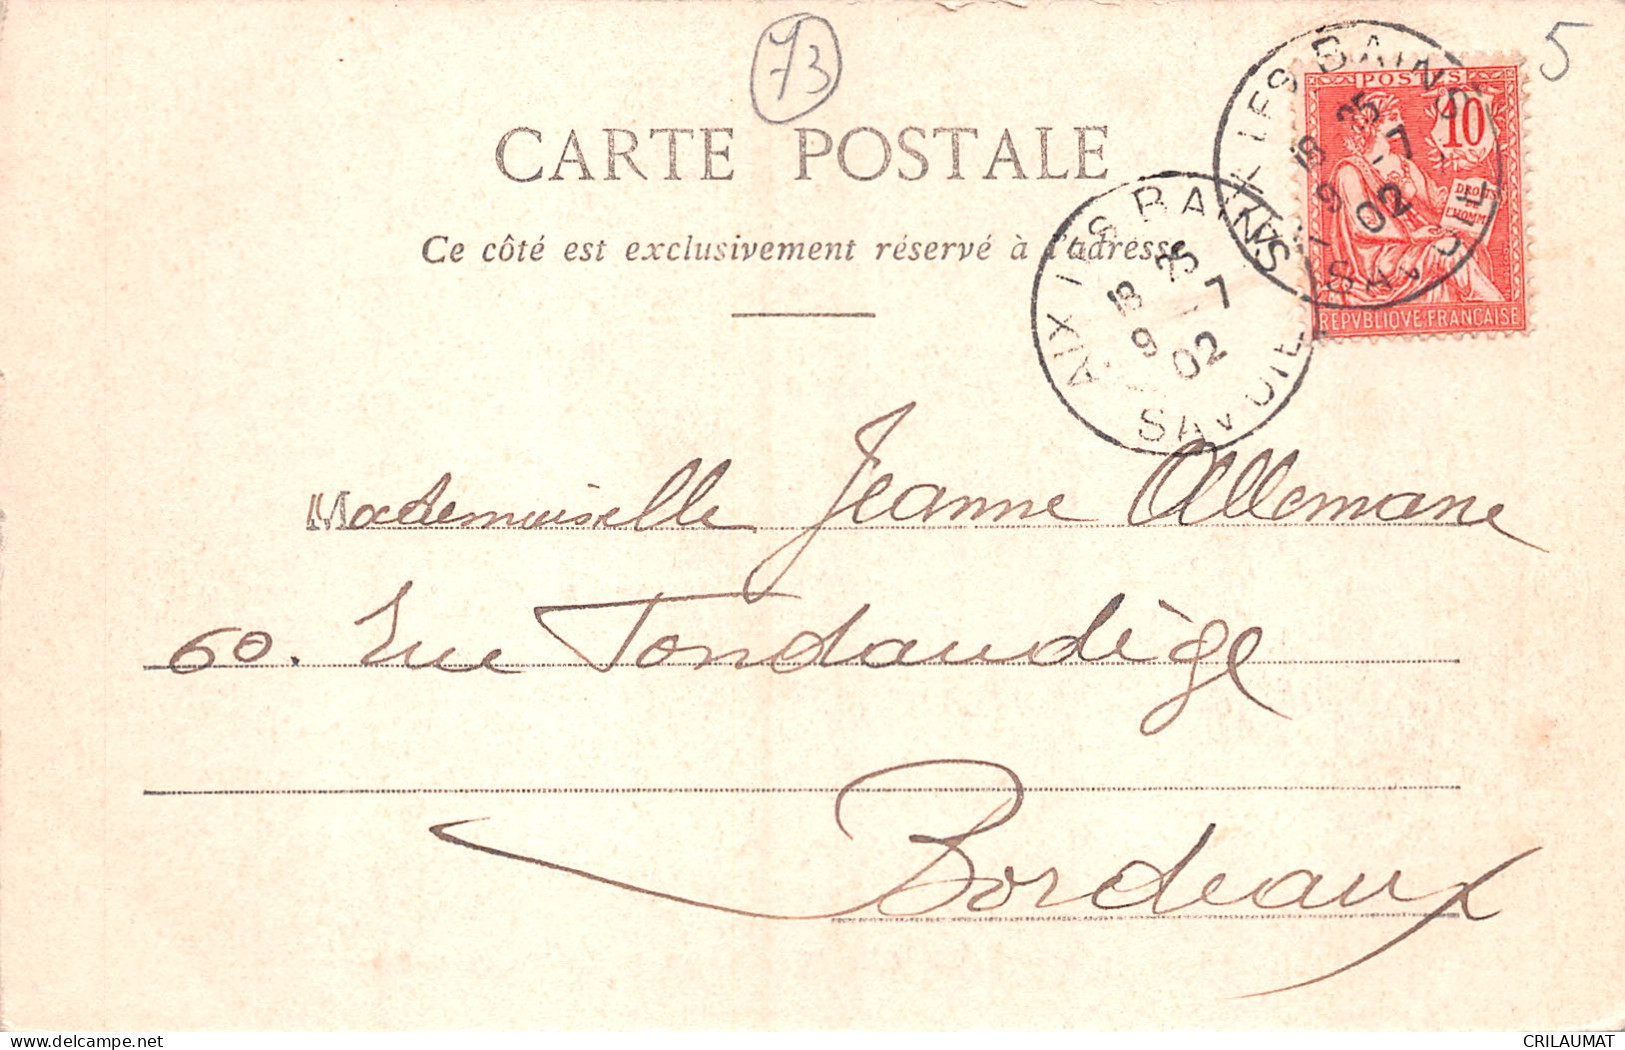 73
5
CARTE POSTALE
Ce côté est exclusivement réservé à l'adresse
POSTES
10
DROITS
DE
L'HOMME
REPVBLIQVE FRANÇAISE
AIX LES BAINS
18 25
9 7
02
SAVOIE
AIX LES BAINS
18 25
9 7
02
SAVOIE
Mademoiselle Jeanne Allemane
60. rue Tondudège
Bordeaux
delcampe.net
CRILAUMAT